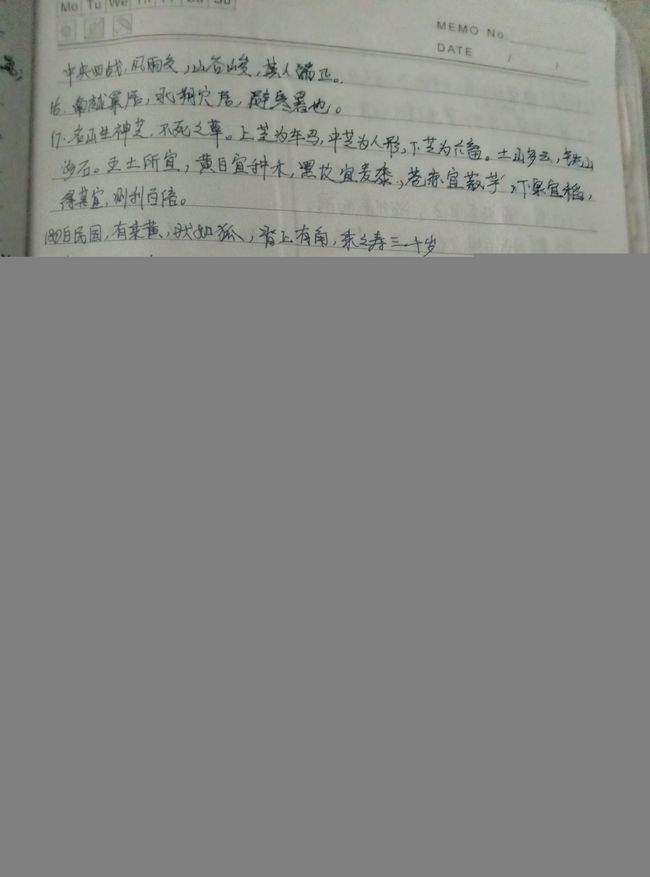 Mo Tu We Th Fr Sa Su
MEMO No.
DATE / /
中央四战,风雨交,山谷峻,其人端正。
16.南越巢居,北朔穴居,避寒暑也。
17.名山生神芝,不死之草。上芝为车马,中芝为人形,下芝为六畜。土山多云,铁山
多石。五土所宜,黄白宜种禾,黑坟宜麦黍,苍赤宜菽芋,下泉宜稻,
得其宜,则利百倍。
白民国,有乘黄,状如狐,背上有角,乘之寿三千岁